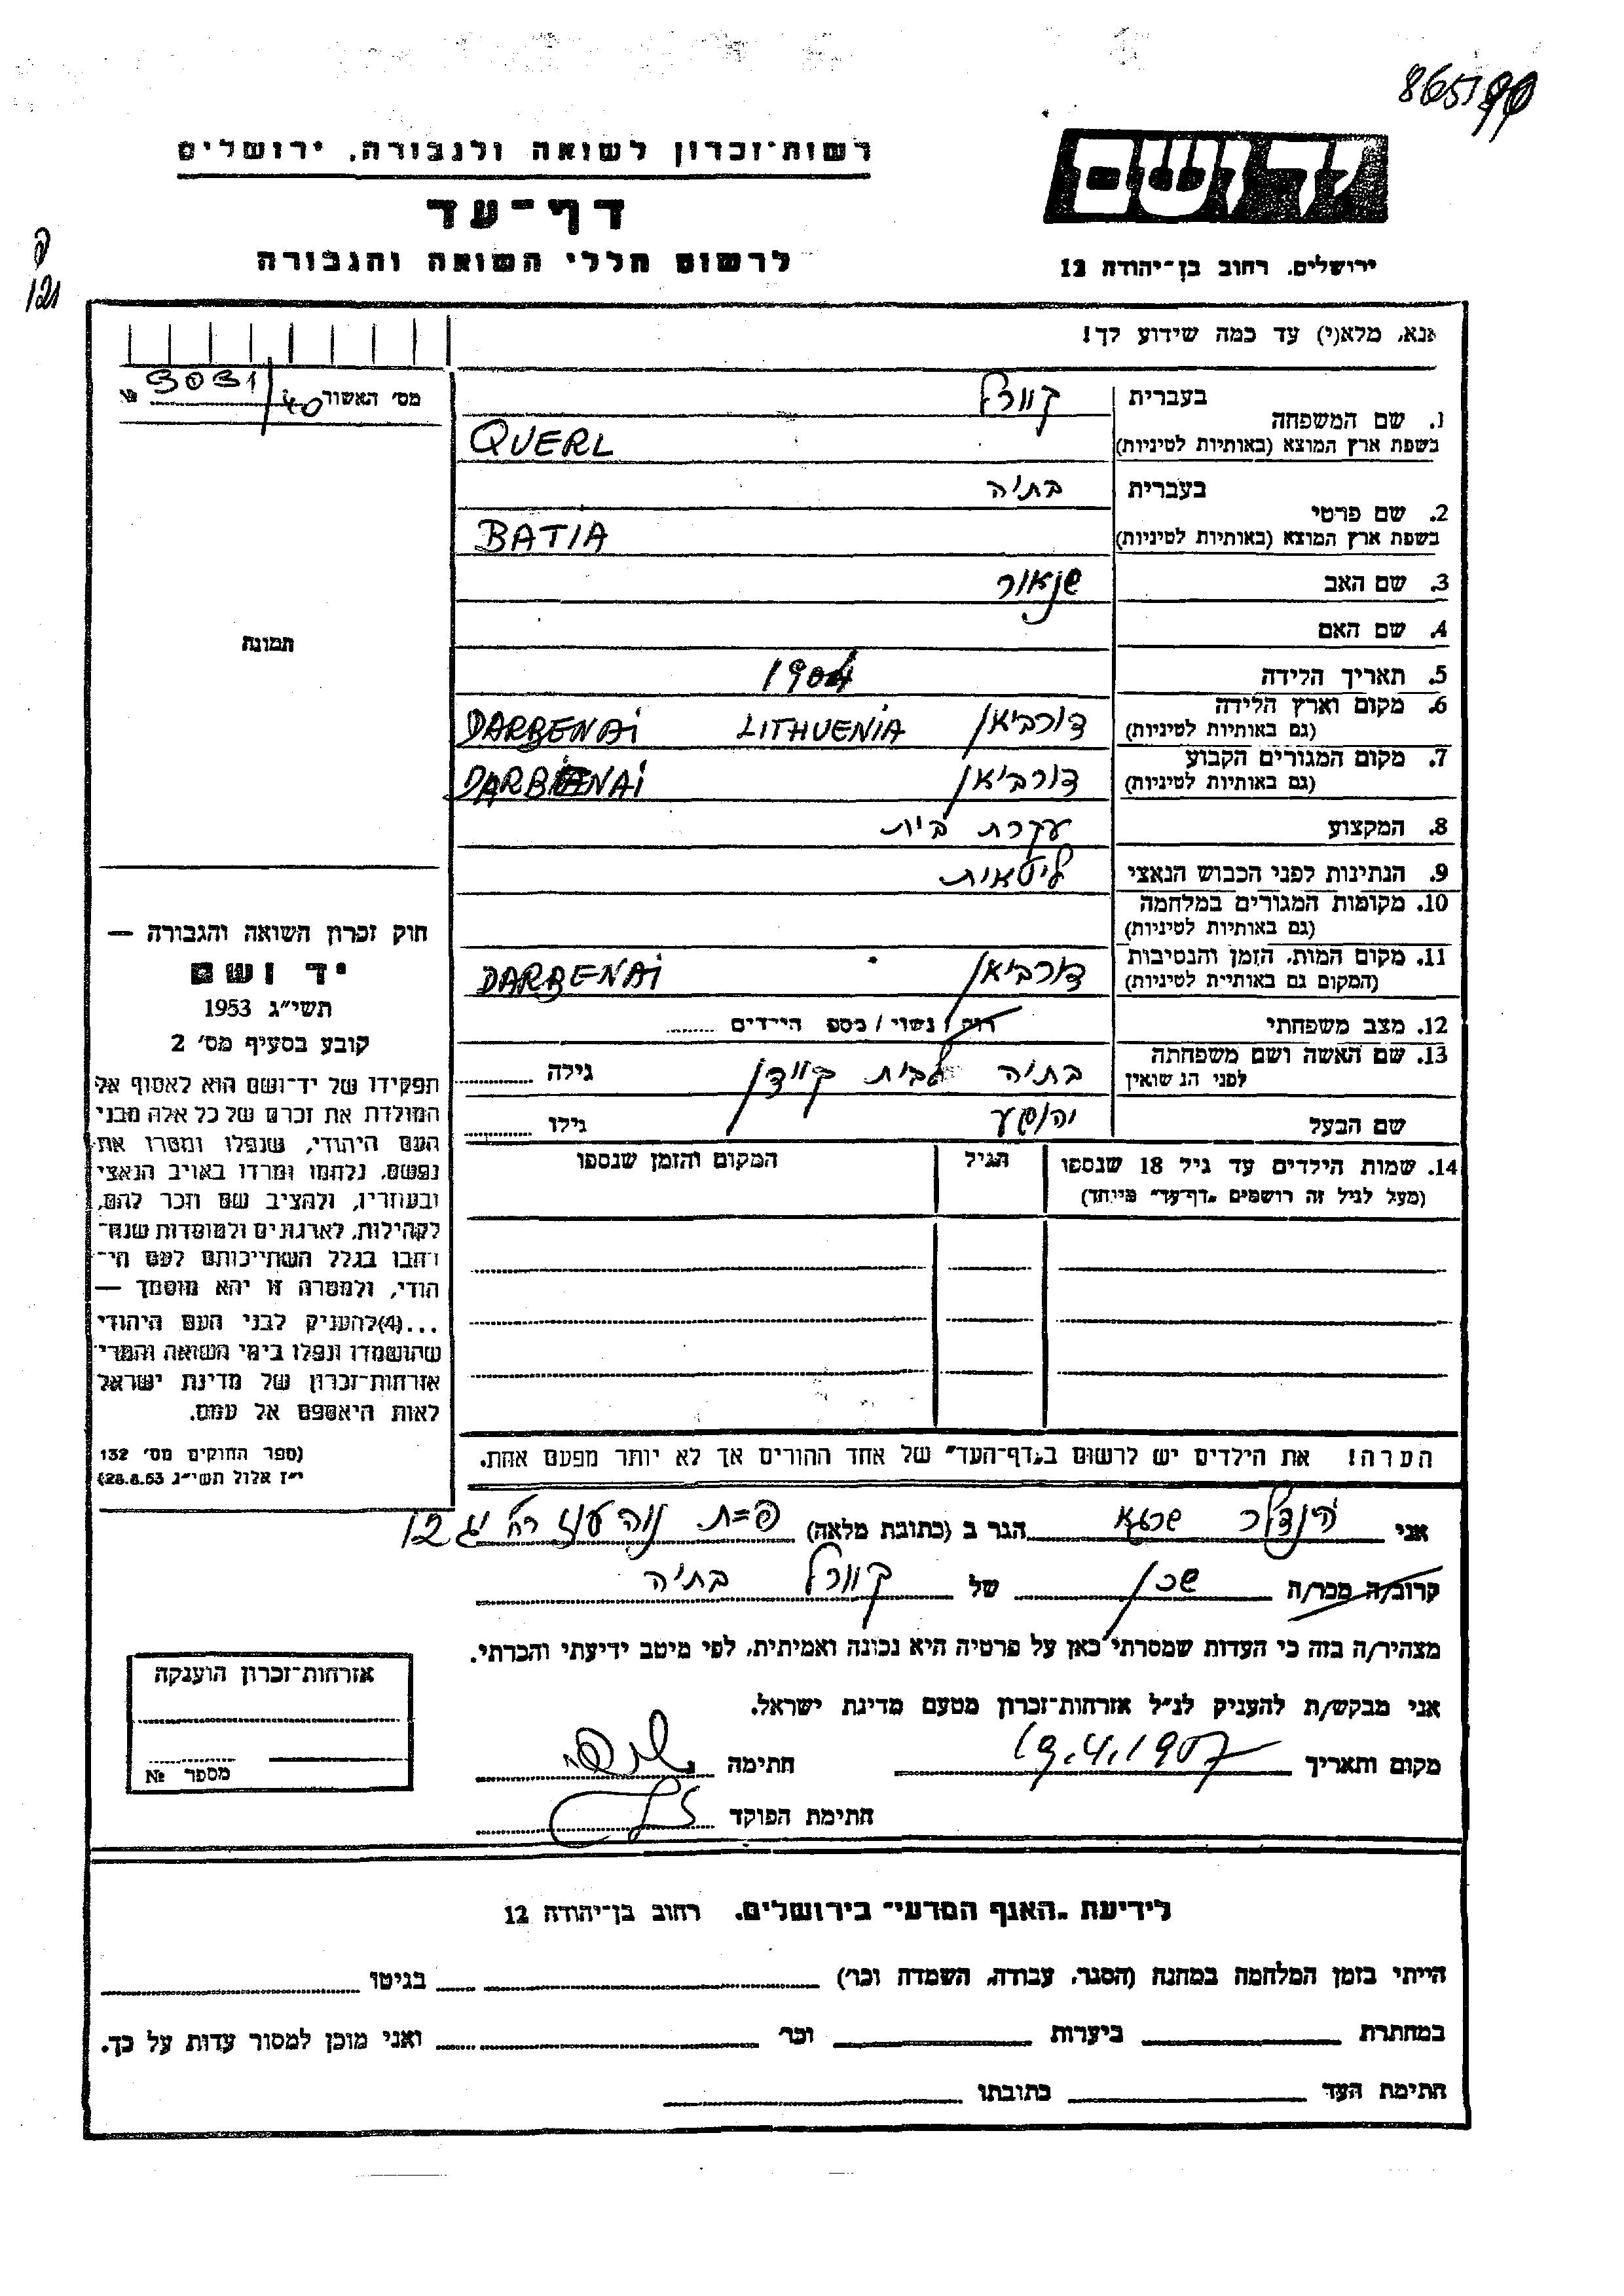 865190
רשות־זכרון לשואה ולגבורה, ירושלים
יד ושם
דף־עד
לרשום חללי השואה והגבורה
ירושלים, רחוב בן־יהודה 12
אנא, מלא(י) עד כמה שידוע לך!
מס׳ האשור № 3031/40
1. שם המשפחה בעברית קוורל
בשפת ארץ המוצא (באותיות לטיניות) QUERL
2. שם פרטי בעברית בתיה
בשפת ארץ המוצא (באותיות לטיניות) BATIA
3. שם האב שנאור
4. שם האם
תמונה
5. תאריך הלידה 1904
6. מקום וארץ הלידה דורביאן LITHUENIA DARBENAI
(גם באותיות לטיניות)
7. מקום המגורים הקבוע דורביאן DARBENAI
(גם באותיות לטיניות)
8. המקצוע עקרת בית
9. הנתינות לפני הכבוש הנאצי ליטאית
10. מקומות המגורים במלחמה
(גם באותיות לטיניות)
11. מקום המות, הזמן והנסיבות דורביאן DARBENAI
(המקום גם באותיות לטיניות)
12. מצב משפחתי רוק / נשוי / מספר הילדים
13. שם האשה ושם משפחתה בתיה לבית גילה
לפני הנשואין
שם הבעל יהושע גילו
14. שמות הילדים עד גיל 18 שנספו הגיל המקום והזמן שנספו
(מעל לגיל זה רושמים „דף־עד״ מיוחד)
הערה! את הילדים יש לרשום ב„דף־העד״ של אחד ההורים אך לא יותר מפעם אחת.
חוק זכרון השואה והגבורה —
יד ושם
תשי״ג 1953
קובע בסעיף מס׳ 2
תפקידו של יד־ושם הוא לאסוף אל
המולדת את זכרם של כל אלה מבני
העם היהודי, שנפלו ומסרו את
נפשם, נלחמו ומרדו באויב הנאצי
ובעוזריו, ולהציב שם וזכר להם,
לקהילות, לארגונים ולמוסדות שנח־
רבו בגלל השתייכותם לעם הי־
הודי, ולמטרה זו יהא מוסמך —
...(4)להעניק לבני העם היהודי
שהושמדו ונפלו בימי השואה והמרי
אזרחות־זכרון של מדינת ישראל
לאות היאספם אל עמם.
(ספר החוקים מס׳ 132
י״ז אלול תשי״ג 28.8.53)
אני הינדלר שרגא הגר ב (כתובת מלאה) פ=ת נוה עוז רח׳ יג 12
קרוב/ה מכר/ה שכן של קוורל בתיה
מצהיר/ה בזה כי העדות שמסרתי כאן על פרטיה היא נכונה ואמיתית, לפי מיטב ידיעתי והכרתי.
אני מבקש/ת להעניק לנ״ל אזרחות־זכרון מטעם מדינת ישראל.
מקום ותאריך 19.4.1957 חתימה
חתימת הפוקד
אזרחות־זכרון הוענקה
מספר №
לידיעת „האגף המדעי״ בירושלים, רחוב בן־יהודה 12
הייתי בזמן המלחמה במחנה (הסגר, עבודה, השמדה וכו׳) בגיטו
במחתרת ביערות וכו׳ ואני מוכן למסור עדות על כך.
חתימת העד כתובתו